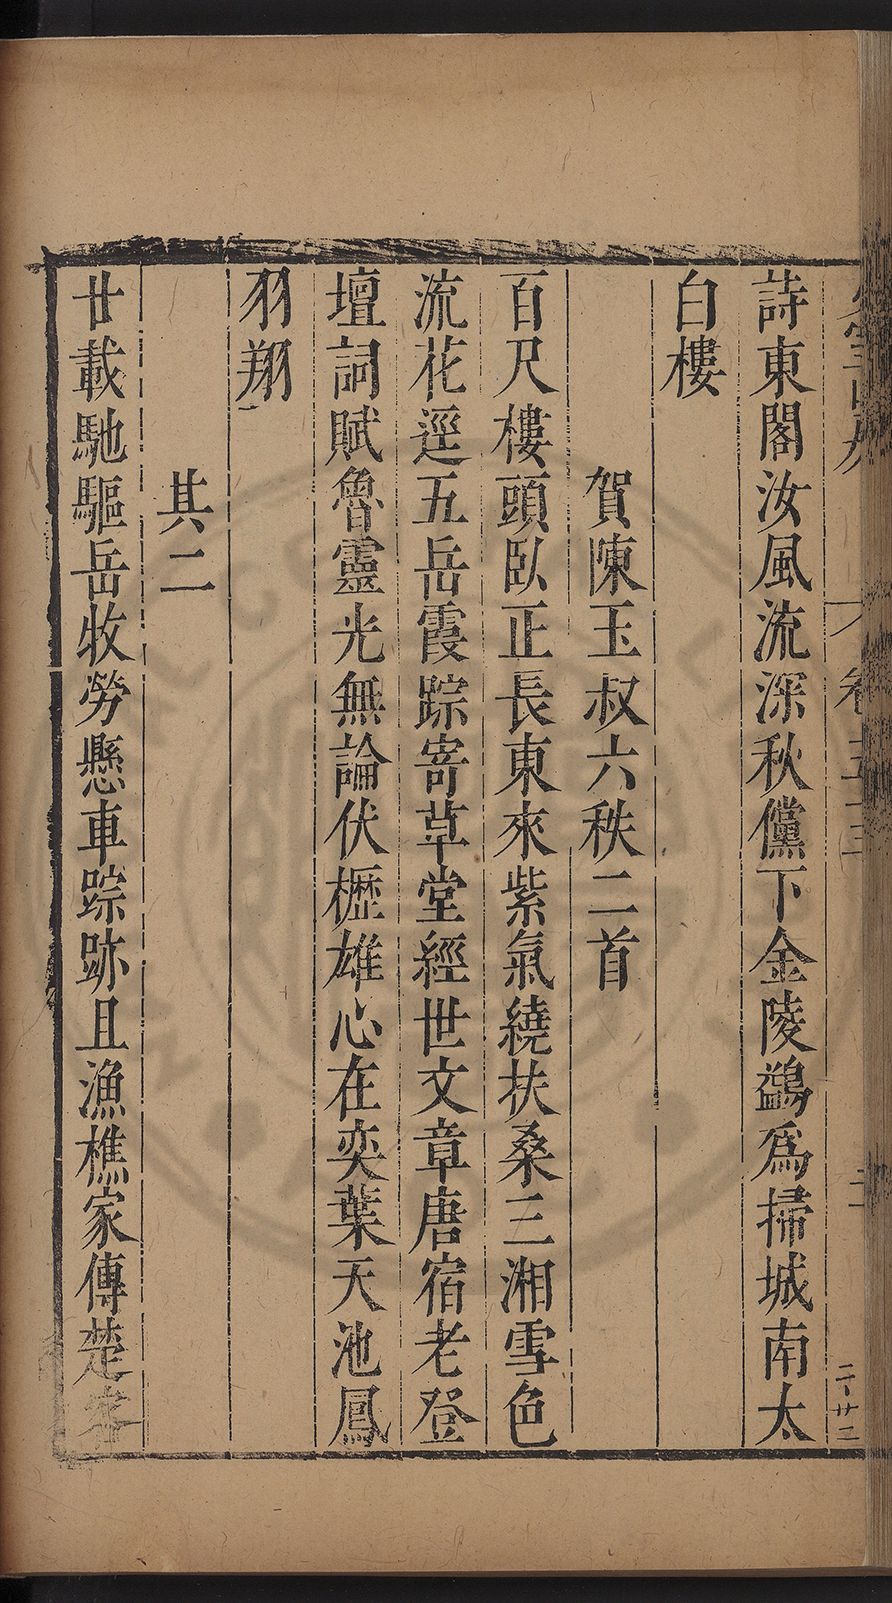 卷五十三
詩東閣汝風流深秋儻下金陵鷁爲掃城南太
白樓
賀陳玉叔六秩二首
百尺樓頭臥正長東來紫氣繞扶桑三湘雪色
流花逕五岳霞踪寄草堂經世文章唐宿老登
壇詞賦魯靈光無論伏櫪雄心在奕葉天池鳳
羽翔
其二
廿載馳驅岳牧勞懸車踪跡且漁樵家傳楚客